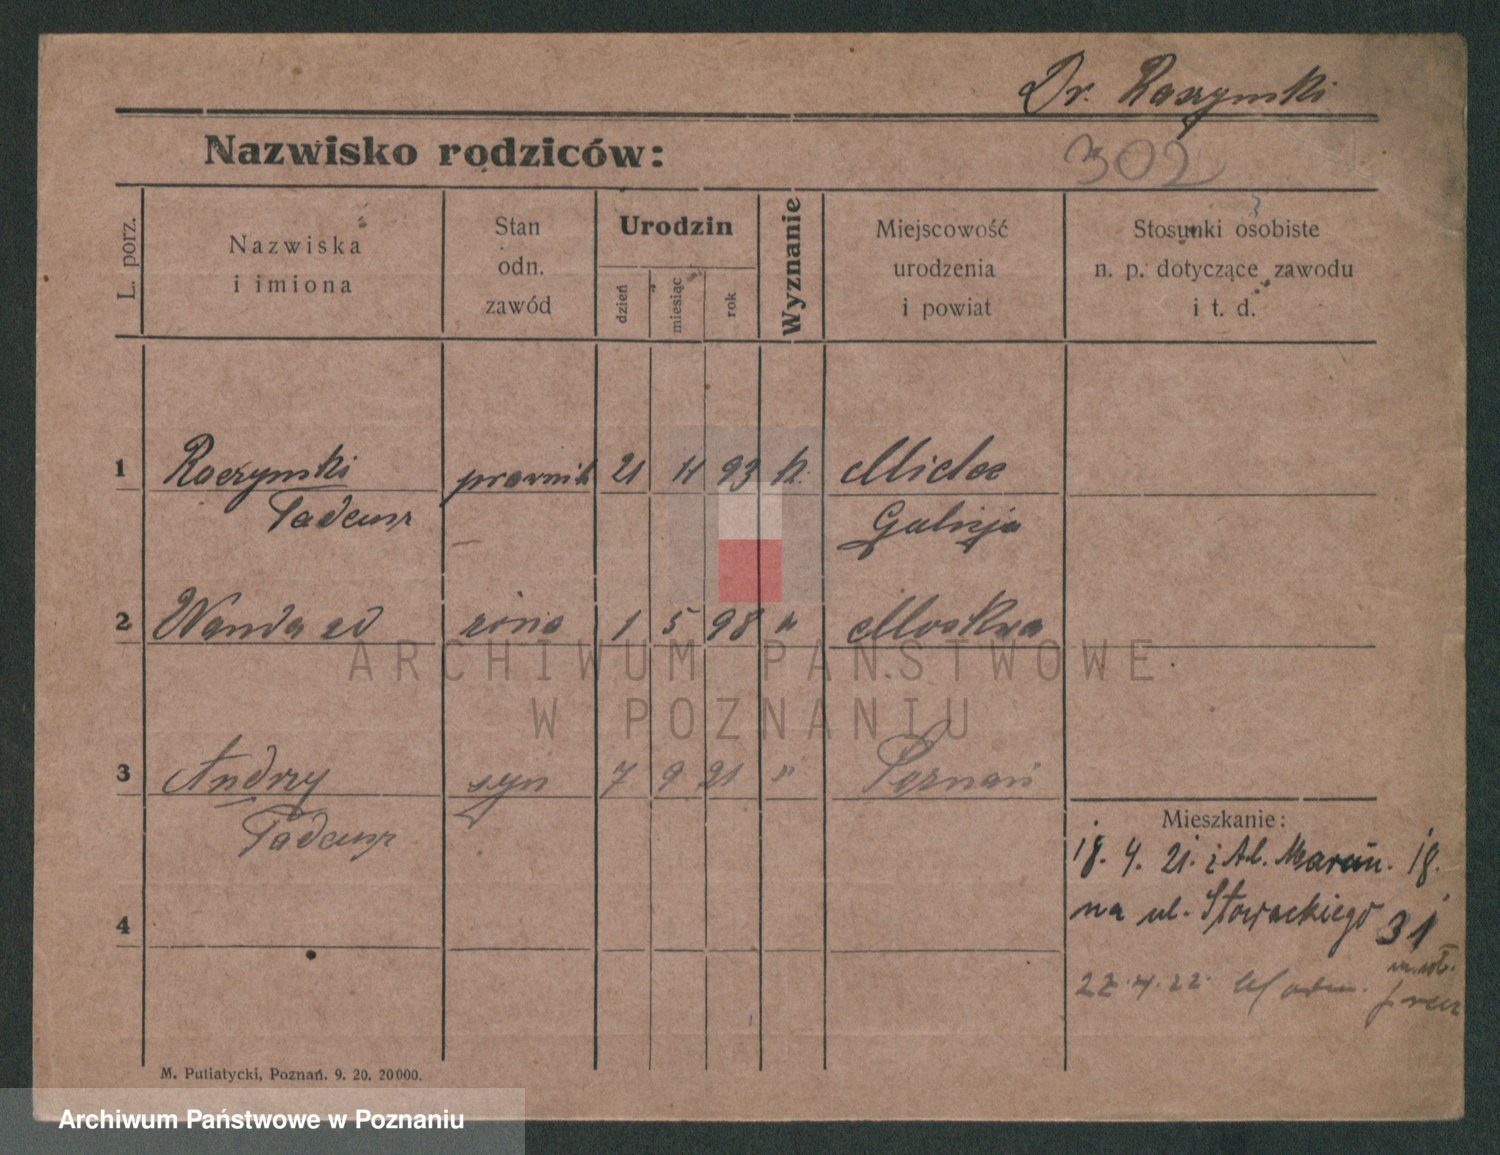 Dr. Raczynski
302
Nazwisko rodziców:
L. porz.
Nazwiska
i imiona
Stan
odn.
zawód
Urodzin
dzień
miesiąc
rok
Wyznanie
Miejscowość
urodzenia
i powiat
Stosunki osobiste
n. p. dotyczące zawodu
i t. d.
1 Raczynski prawnik 21 11 93 k. Mielec
Tadeusz Galicja
2 Wanda żona 1 5 98 " Moskwa
ARCHIWUM PAŃSTWOWE
W POZNANIU
3 Andrzy syn 7 9 21 " Poznań
Tadeusz
Mieszkanie:
18. 4. 21. z Al. Marcin. 18.
na ul. Słowackiego 31
4
22.4.22
M. Putiatycki, Poznań. 9. 20. 20000.
Archiwum Państwowe w Poznaniu